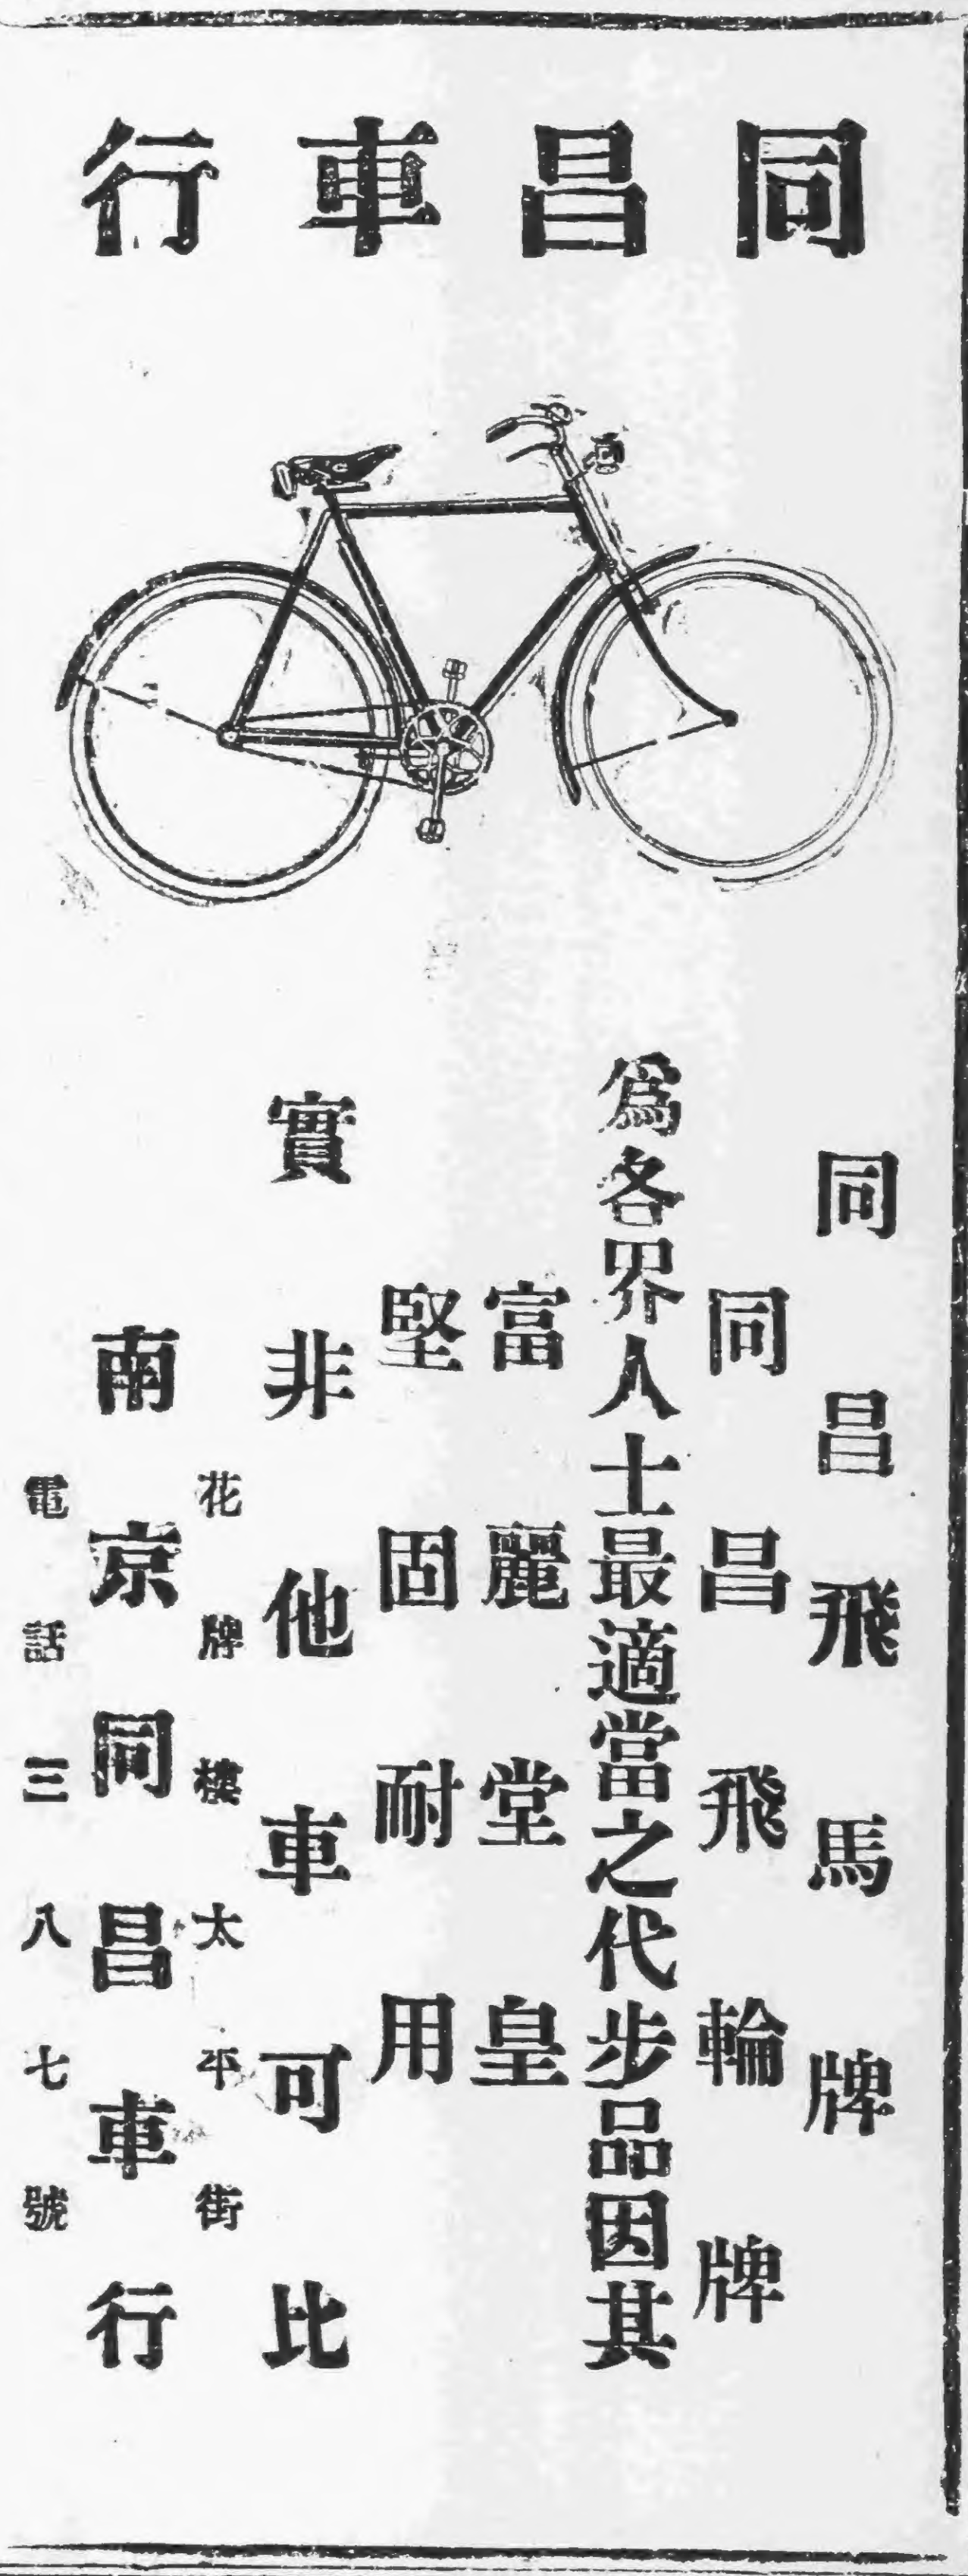 同昌車行
同昌飛馬牌
同昌飛輪牌
爲各界人士最適當之代步品因其
富麗堂皇
堅固耐用
實非他車可比
花牌樓太平街
南京同昌車行
電話三八七號